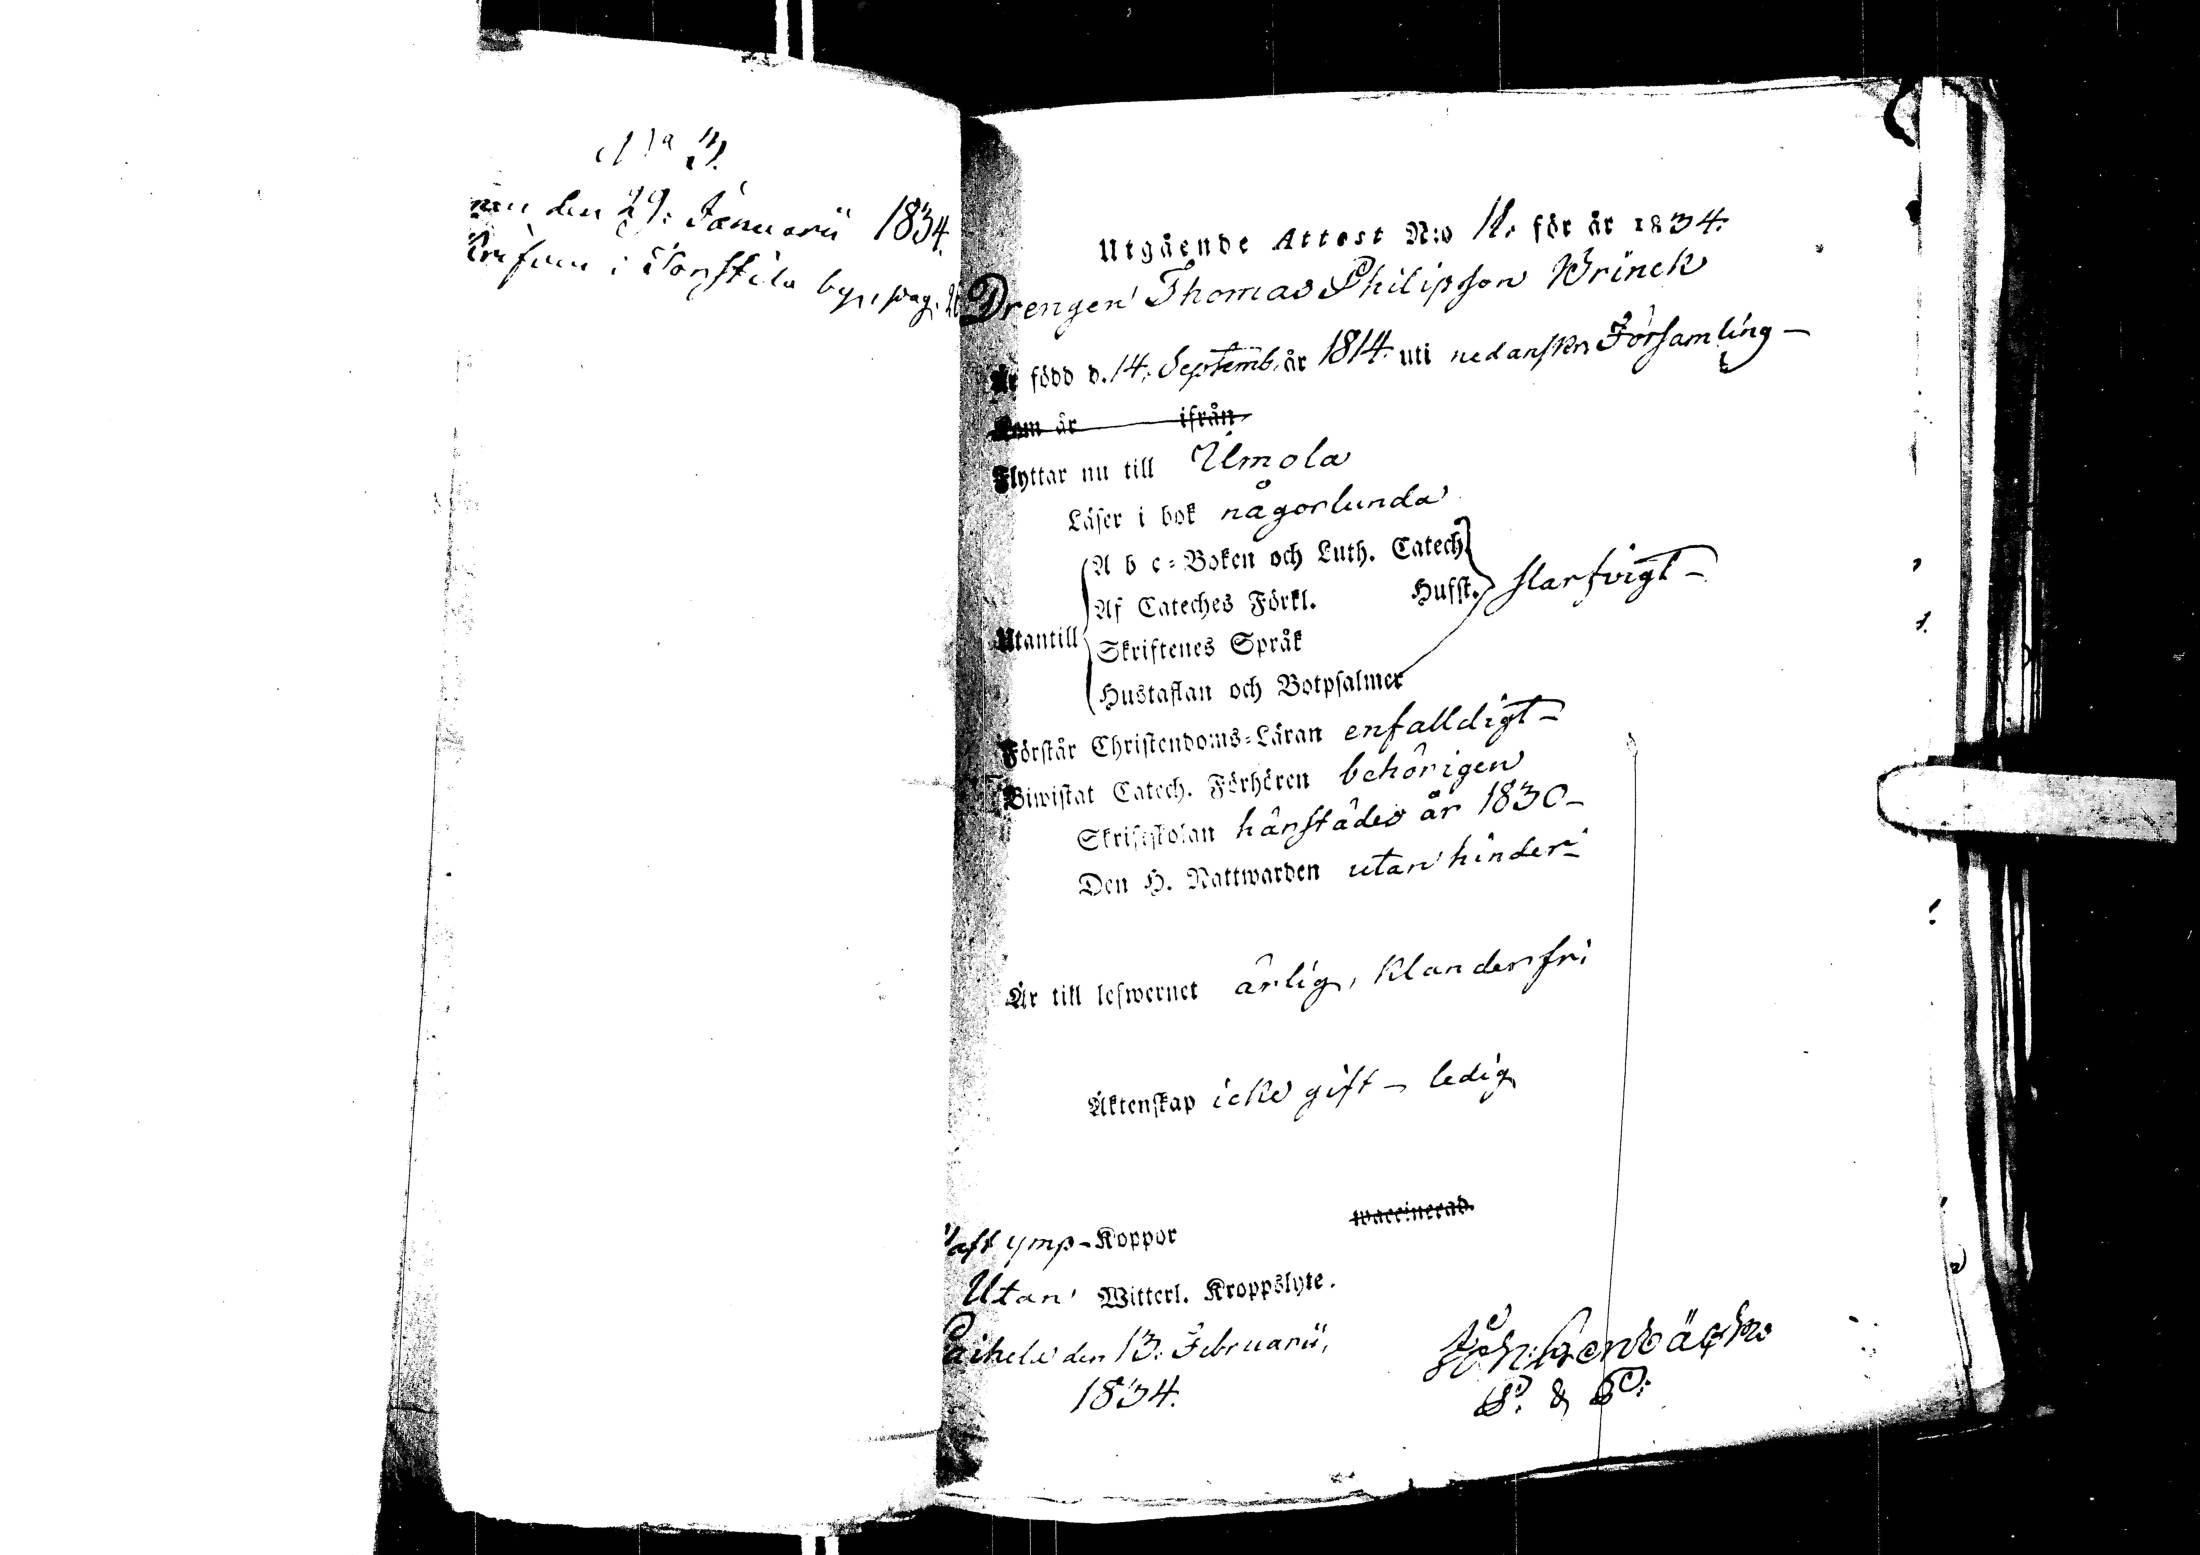 N:o 3.
den 29: Januarii 1834.
i Torstila by, pag.
Utgående Attest N:o 11. för år 1834.
Drengen Thomas Philipson Brinck
Är född d. 14. Septemb. år 1814. uti nedanskn Församling –
Kom år ifrån
Flyttar nu till Umola
Läser i bok någorlunda
A b c-Boken och Luth. Catech.
Af Cateches Förkl. Hufst. slarfvigt –
Utantill
Skriftenes Språk
Hustaflan och Botpsalmer
Förstår Christendoms-Läran enfalldigt –
Biwistat Catech. Förhören behörigen
Skriftskolan härstädes år 1830 –
Den H. Nattwarden utan hinder –
Är till lefwernet ärlig, klanderfri
Äktenskap icke gift – ledig
Haft ymp-Koppor waccinerad.
Utan Witterl. Kroppslyte.
den 13: Februarii,
1834.
P. & P: